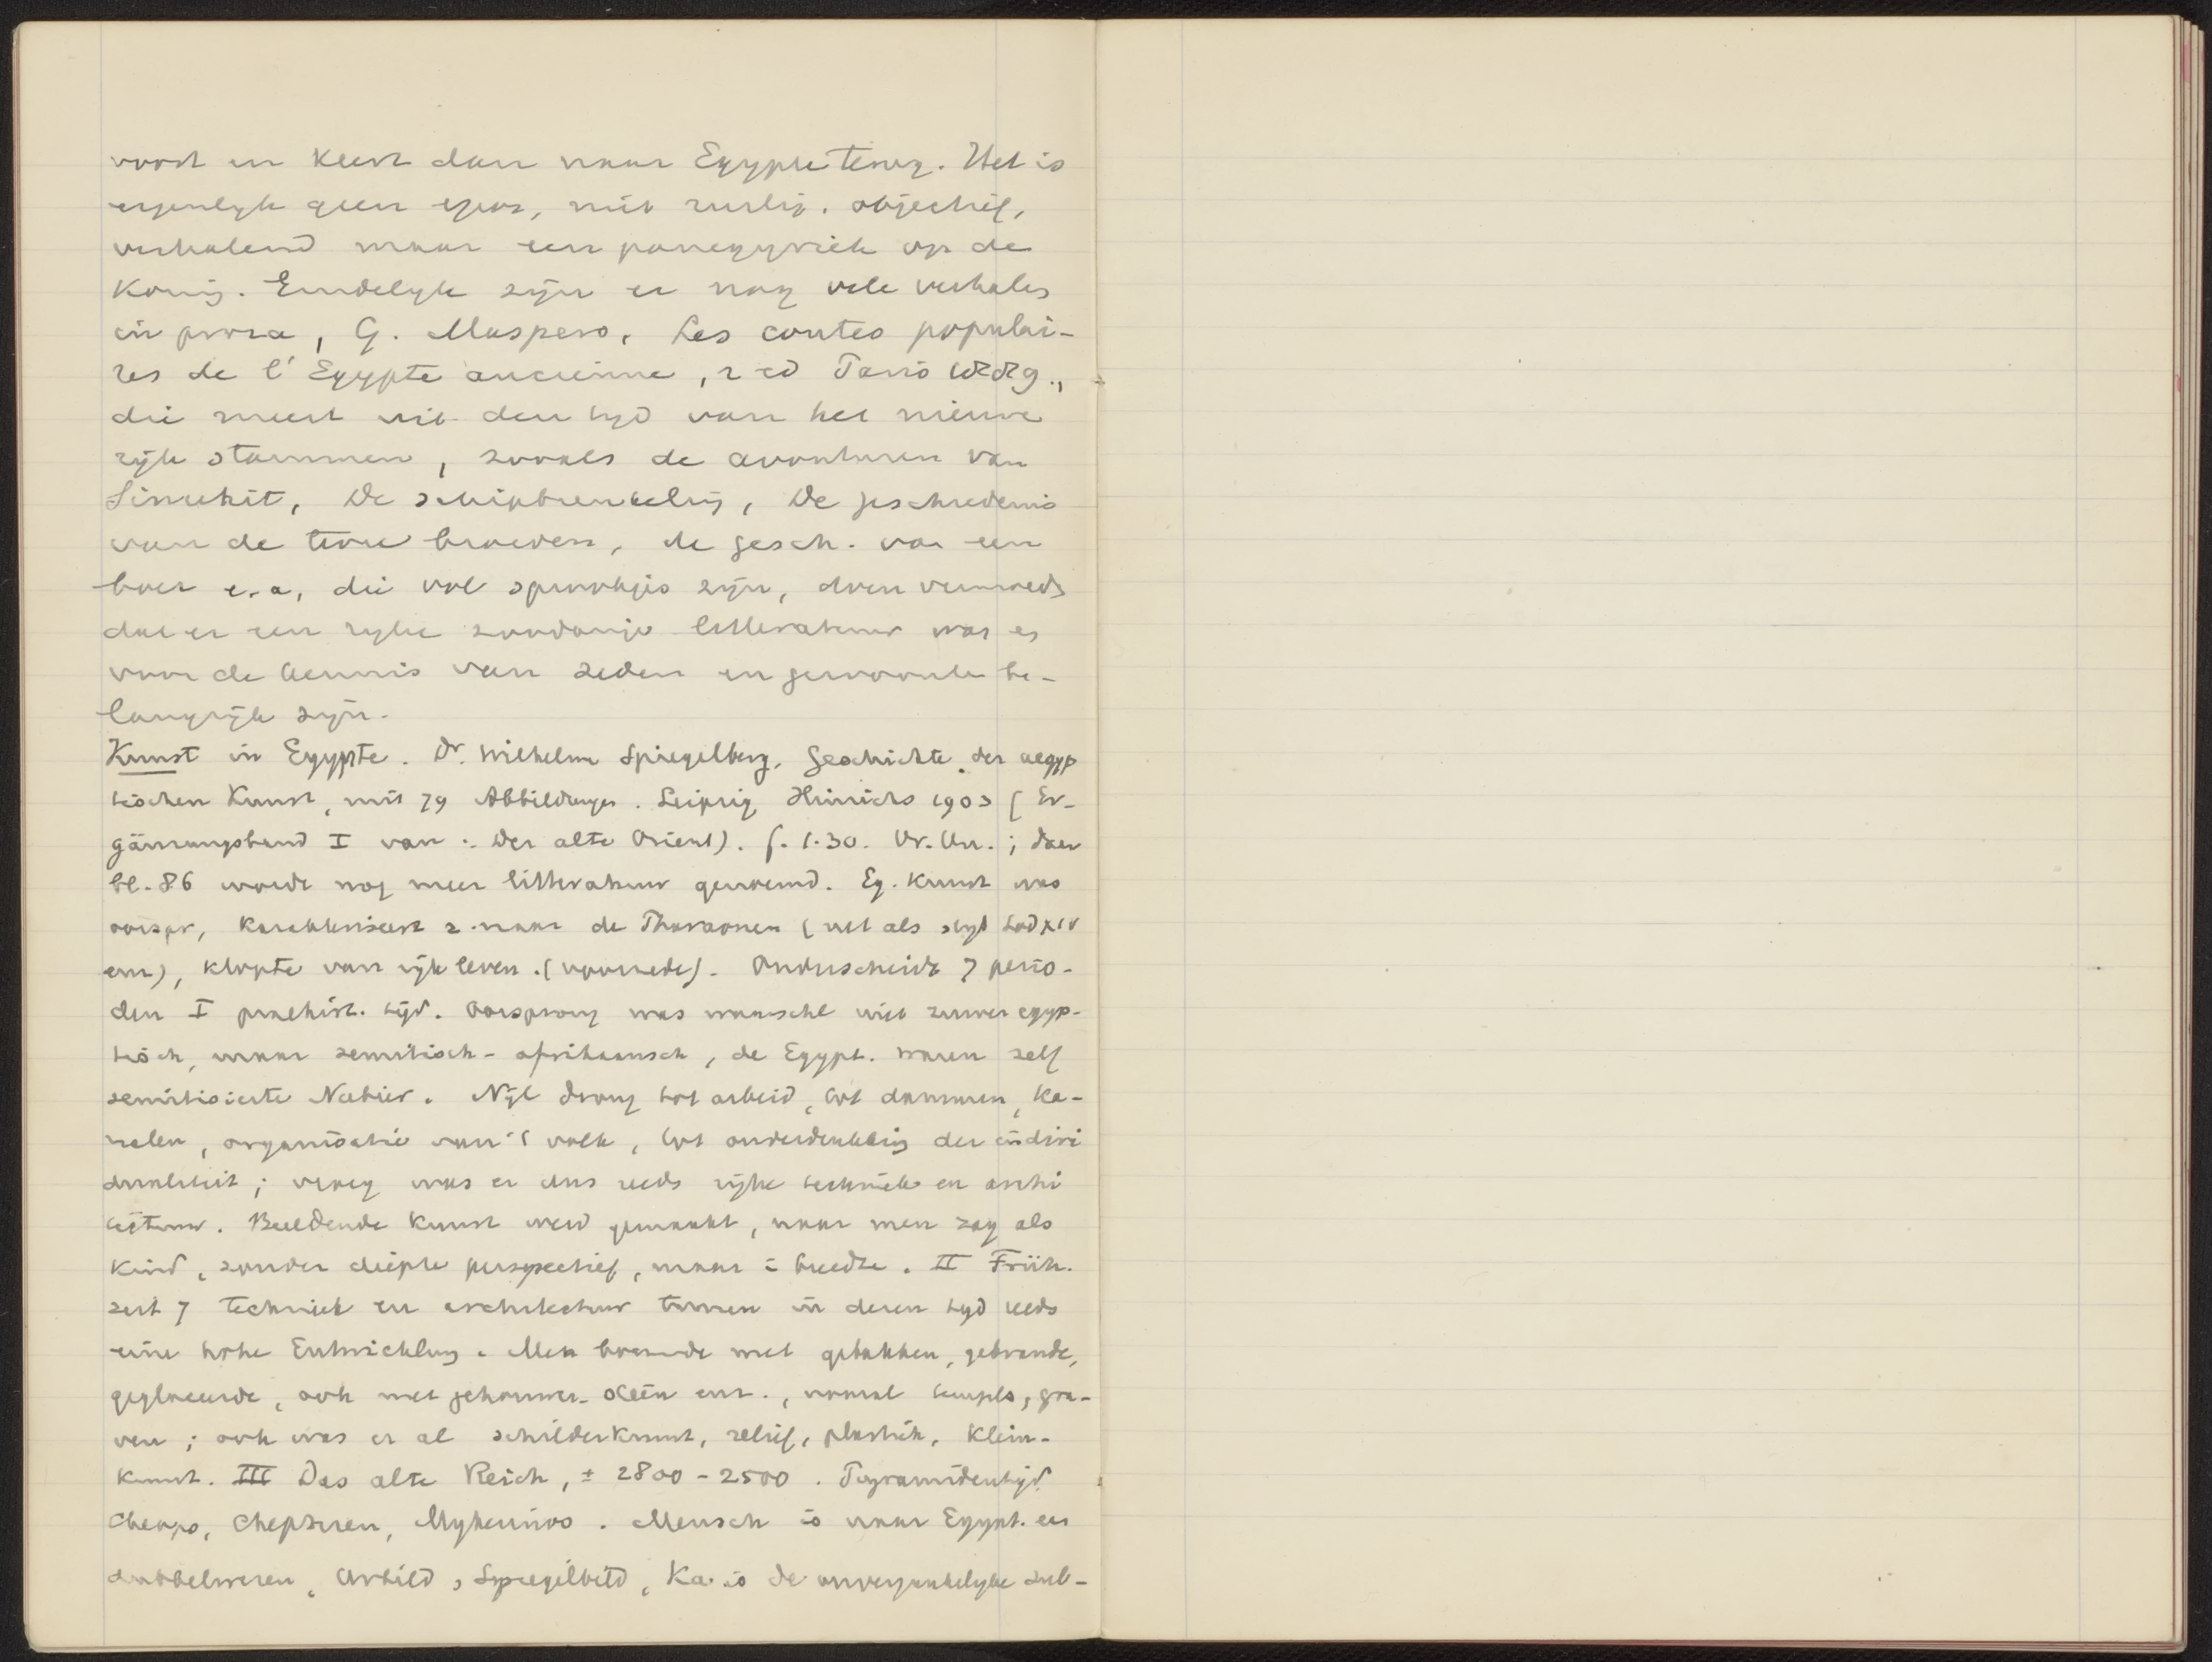 voort en keert dan naar Egypte terug. Het is
eigenlyk geen epos, niet rustig, objectief,
verhalend maar een panegyriek op de
Koning. Eindelyk zijn er nog vele verhalen
in proza, G. Maspero, Les contes populai-
res de l'Egypte ancienne, 2 ed Paris 1889,
die meest uit den tyd van het nieuwe
rijk stammen, zooals de avonturen van
Sinuhit, De schipbreukeling, De geschiedenis
van de twee broeders, de gesch. van een
boer e.a, die vol sprookjes zijn, doen vermoeden
dat er een ryke zoodanige litteratuur was en
voor de kennis van zeden en gewoonten be-
langrijk zijn.
Kunst in Egypte. Dr. Wilhelm Spiegelberg, Geschichte der aegyp
tischen Kunst, mit 79 Abbildungen. Leipzig Hinrichs 1903 [Er-
gänzungsband I van: Der alte Orient). f. 1.30. ; daar
bl. 86 worde nog meer litteratuur genoemd. Eg. Kunst was
oorspr, karakteriseert z. naar de Pharaonen (net als styl Lod XIV
enz), klopte van rijk leven. (voorrede). Onderscheidt 7 perio-
den I praehist. tijd. Oorsprong was waarschl niet zuiver egyp-
tisch, maar semitisch-afrikaansch, de Egypt. waren zelf
semitisierte Nubier. Nijl drong tot arbeid, tot dammen, ka-
nalen, organisatie van 't volk, tot onderdrukking der indivi
dualiteit; vroeg was er dus reeds rijke techniek en archi
tectuur. Beeldende Kunst werd gemaakt, naar men zag als
kind, zonder diepte perspectief, maar i breedte. II Früh.
zeit 7 techniek en architectuur toonen in dezen tyd reeds
eine hohe Entwicklung. Men bouwde met gebakken, gebrande,
geglaceerde, ook met gehouwen steen enz., vooral tempels, gra-
ven; ook was er al schilderkunst, relief, plastiek, klein-
kunst. III Das alte Reich, ± 2800-2500. Pyramidentijd.
Cheops, Chephren, Mykerinos. Mensch is naar Egypt. een
dubbelwezen, Urbild, Spiegelbild, Ka is de onvergankelyke sub-